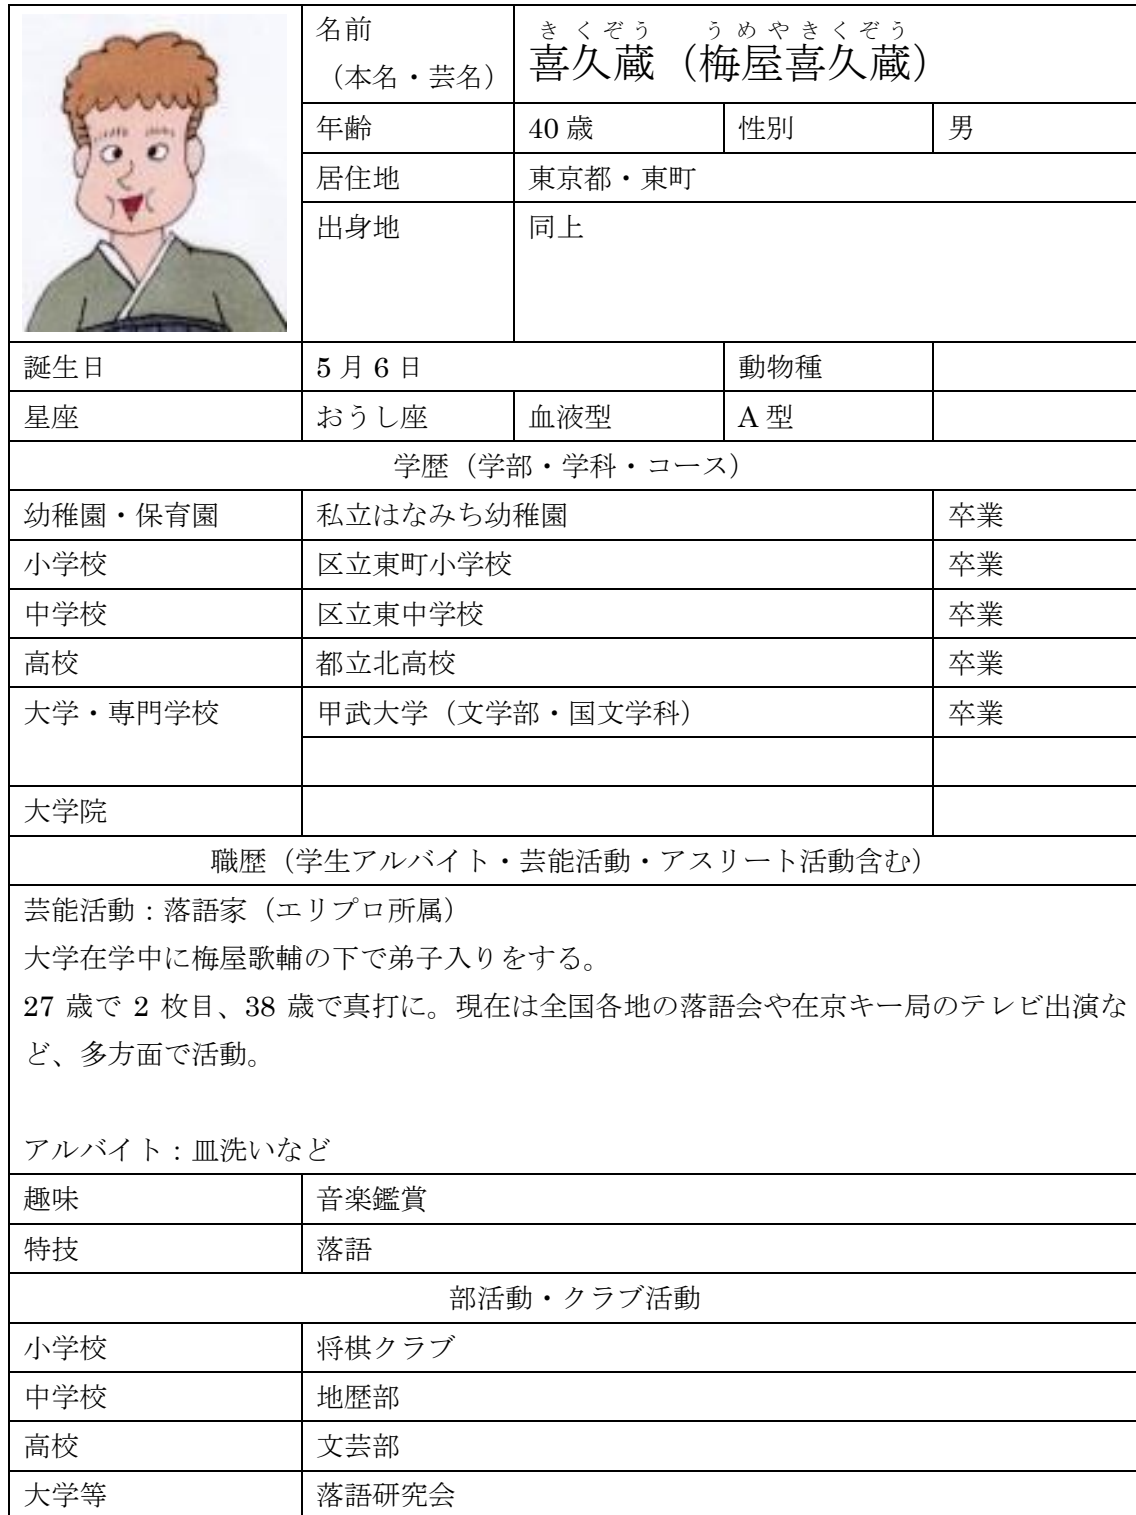 名前
（本名・芸名）
きくぞう　うめやきくぞう
喜久蔵（梅屋喜久蔵）
年齢 40歳 性別 男
居住地 東京都・東町
出身地 同上
誕生日 5月6日 動物種
星座 おうし座 血液型 A型
学歴（学部・学科・コース）
幼稚園・保育園 私立はなみち幼稚園 卒業
小学校 区立東町小学校 卒業
中学校 区立東中学校 卒業
高校 都立北高校 卒業
大学・専門学校 甲武大学（文学部・国文学科） 卒業
大学院
職歴（学生アルバイト・芸能活動・アスリート活動含む）
芸能活動：落語家（エリプロ所属）
大学在学中に梅屋歌輔の下で弟子入りをする。
27 歳で 2 枚目、38 歳で真打に。現在は全国各地の落語会や在京キー局のテレビ出演な
ど、多方面で活動。
アルバイト：皿洗いなど
趣味 音楽鑑賞
特技 落語
部活動・クラブ活動
小学校 将棋クラブ
中学校 地歴部
高校 文芸部
大学等 落語研究会